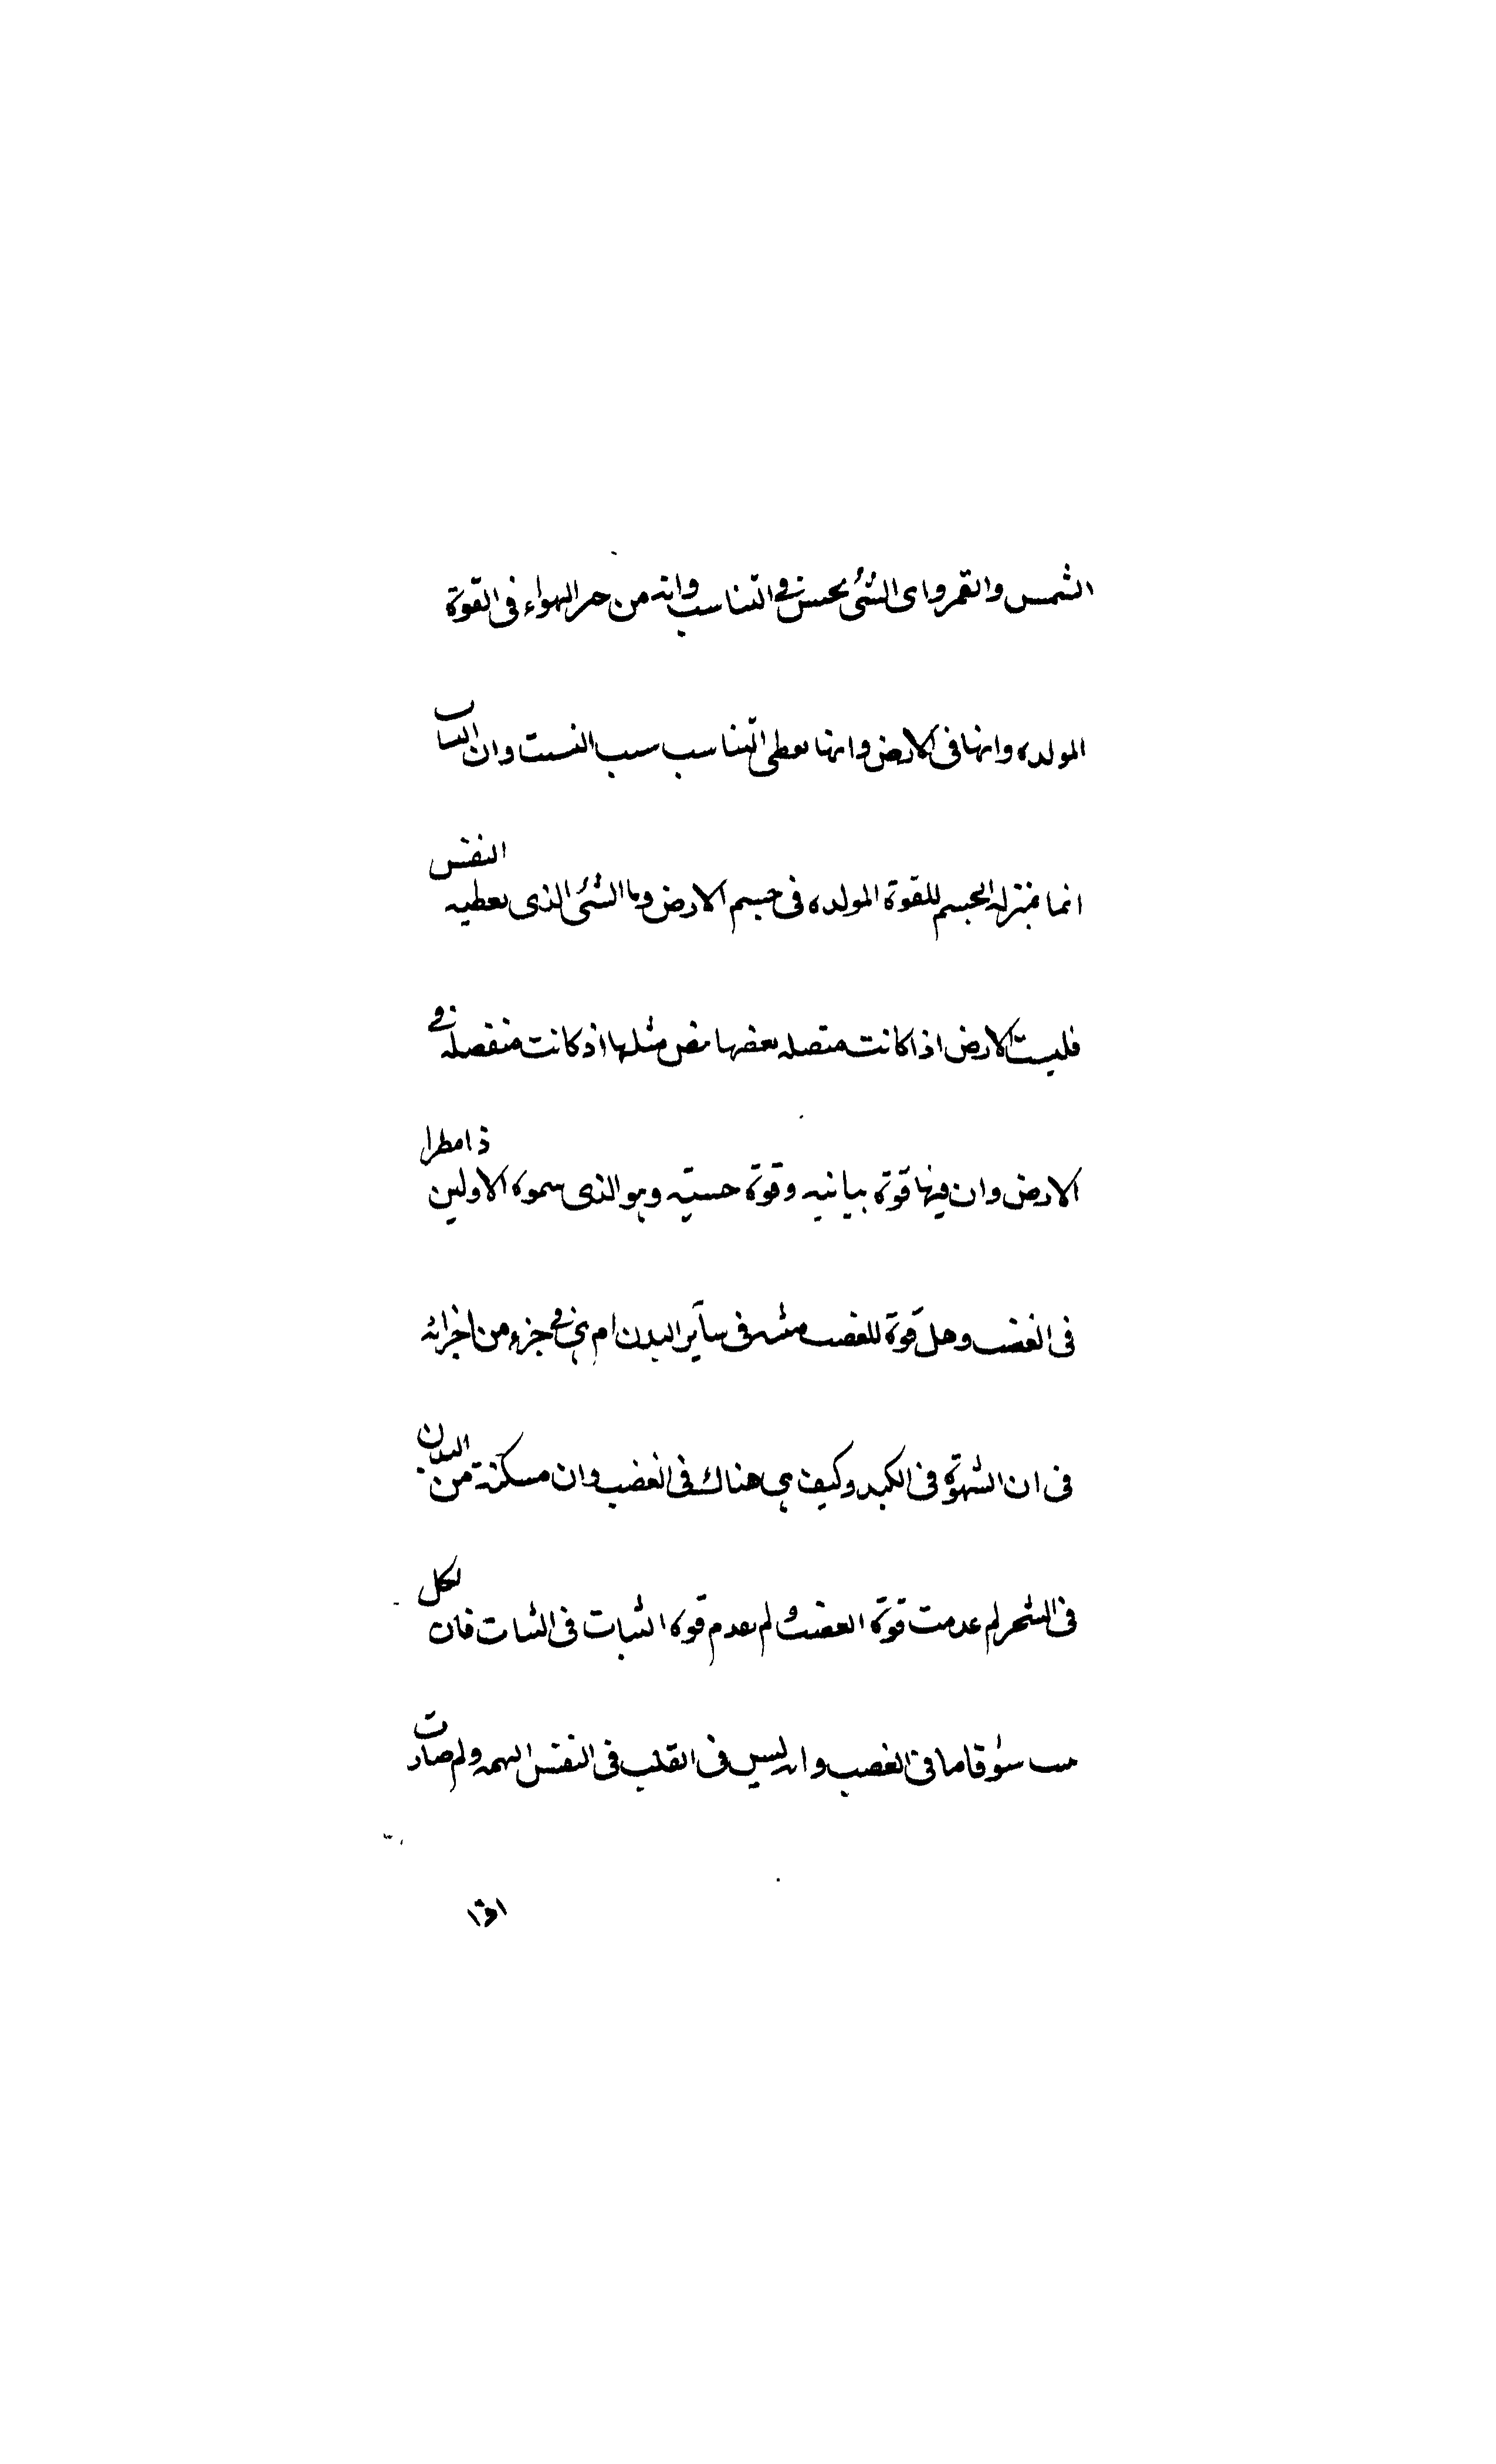 الشمس والقمر واى الشئ يحس فى التناسب وانه من حر الهواء فى القوة
المولده وانها فى الارض وانها يعطى التناسب سبب النسبت وان النبات
انما بمنزله الجسم للقوة المولده فى جسم الارض وما الشئ الذى يعطيه النفس
فليست الارض اذا كانت متصله بعضها ببعض مثلها اذ كانت منفصله فى
الارض وان فيها قوة بيانيه وقوة حسيّه وهو الذى سموه الاولين ذامطرا
فى الغضب وهل قوة للغضب فى ساير البدن ام هى فى جزء من اجزائه
فى ان الشهوة فى الكبد وكيف هى هناك فى الغضب وان مسكنة من البدن
فى الشجر لم عدمت قوة الغضب و لم يعدم قوة النبات فى النبات فان لكل
شوقا ما فى الغضب وانه ليس فى القلب فى النفس البهميه ولم صارت